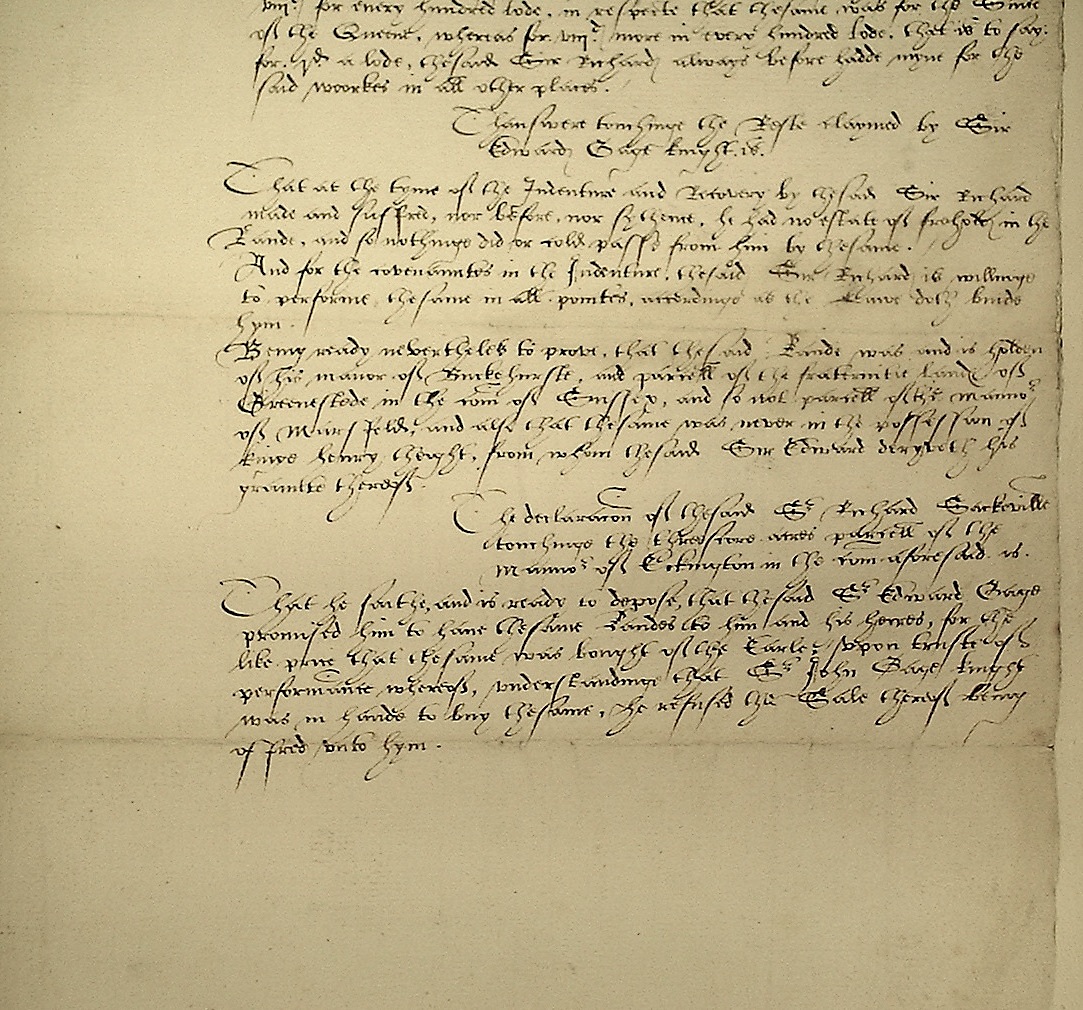 viijs for every hundred lode, in respecte that thesame was for the
of the Quene, whereas for viijs more in every hundred lode, that is to say,
for jd a lode, thesaid Sir Richard always before hadde myne for the
said woorkes in all other places.
Thanswere touchinge the Reste claymed by Sir
Edward Gage knight. is.
That at the tyme of the Indenture and Recovery by thesaid Sir Richard
made and suffred, nor before, nor sythence, he had no estate of freholde in the
Lande, and so nothinge did or cold passe from him by thesame.
And for the covenauntes in the Indenture, thesaid Sir Richard is willinge
to performe thesame in all pointes, accordinge as the Lawe doth binde
hym.
Being ready neverthelesse to prove, that thesaid Lande was and is holden
of his manor of Buckehurste, and parcell of the fraternitie lande of
Greenestede in the com of Sussex, and so not parcell of the Manor
of Marsfeld, and also that thesame was never in the possession of
kinge henry theight, from whom thesaid Sir Edward deryveth his
graunte thereof.
The declaracon of thesaid Sr Richard Sackeville
touchinge the threscore acres parcell of the
Mannor of Eckington in the com aforesaid. is.
That he saithe, and is ready to depose, that thesaid Sr Edward Gage
promised him to have thesame Landes to him and his heires, for the
like price that thesame was bought of the Earle, upon truste of
performance whereof, understandinge that Sr John Gage knight
was in hande to buy thesame, he refused the Sale thereof being
offred unto hym.